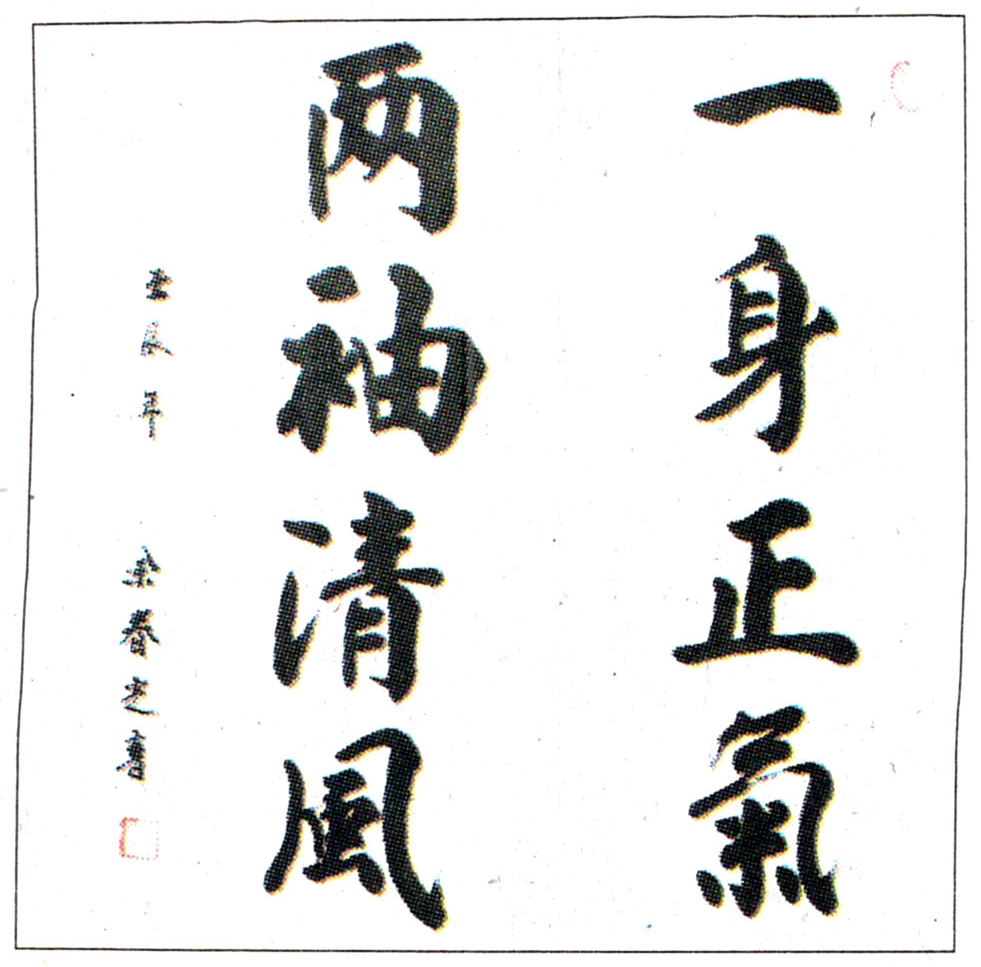 一身正氣
两袖清風
壬辰年 余春之書